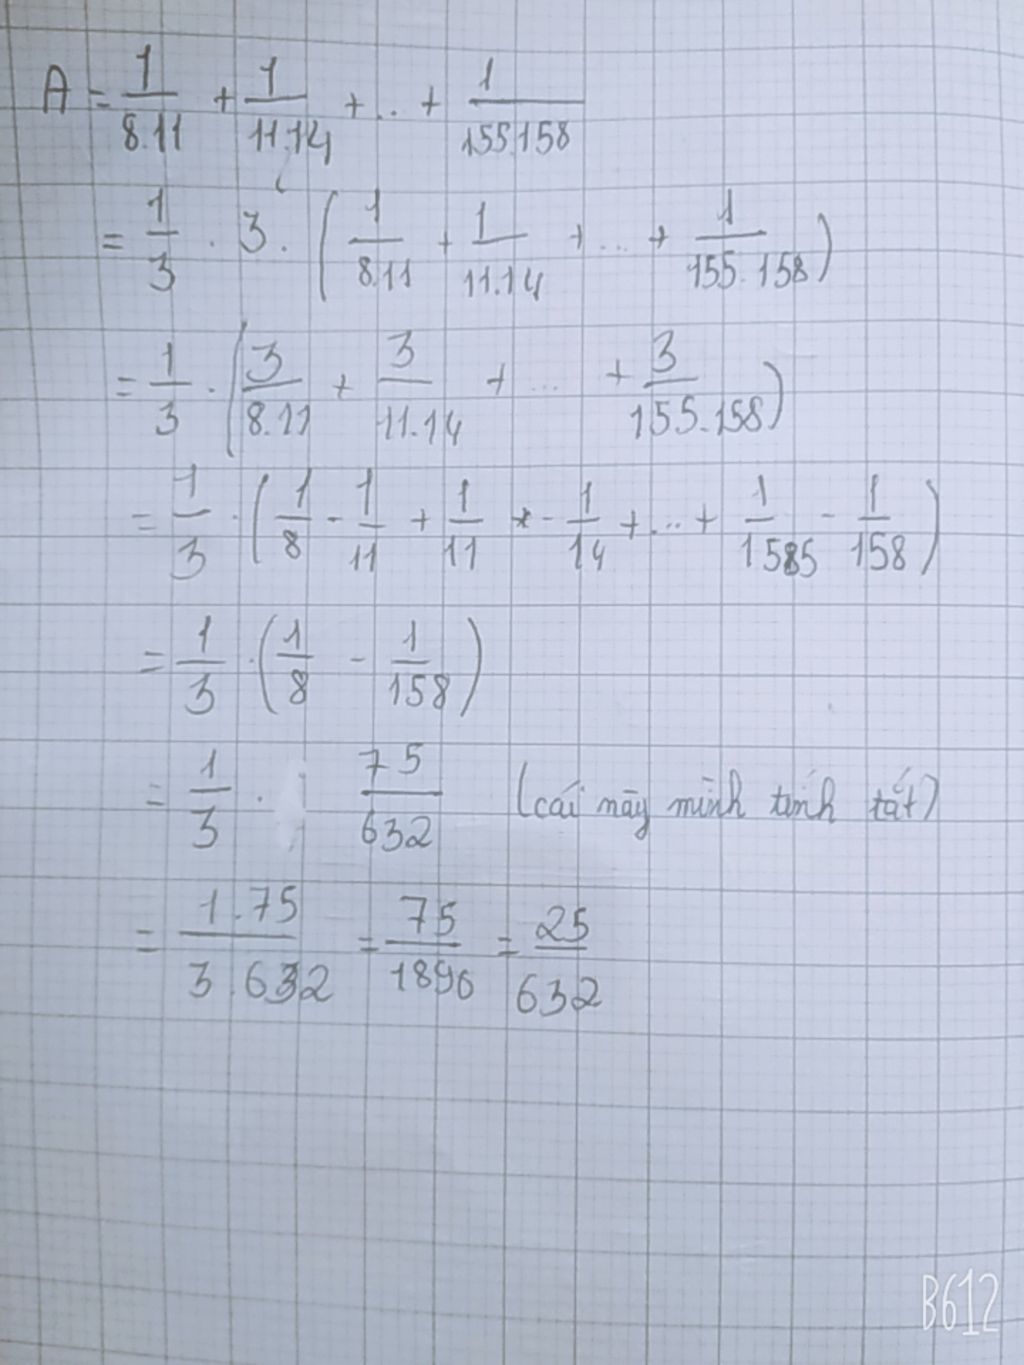 A = 1/8.11 + 1/11.14 + ... + 1/155.158
= 1/3 . 3 . (1/8.11 + 1/11.14 + ... + 1/155.158)
= 1/3 . (3/8.11 + 3/11.14 + ... + 3/155.158)
= 1/3 . (1/8 - 1/11 + 1/11 - 1/14 + ... + 1/155 - 1/158)
= 1/3 . (1/8 - 1/158)
= 1/3 . 75/632 (cái này mình tính tắt)
= 1.75/3.632 = 75/1896 = 25/632
B612